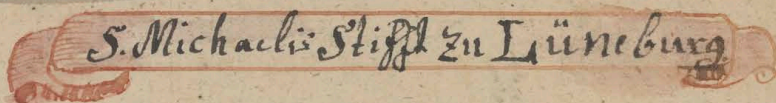 S. Michaelis Stifft zu Lüneburg